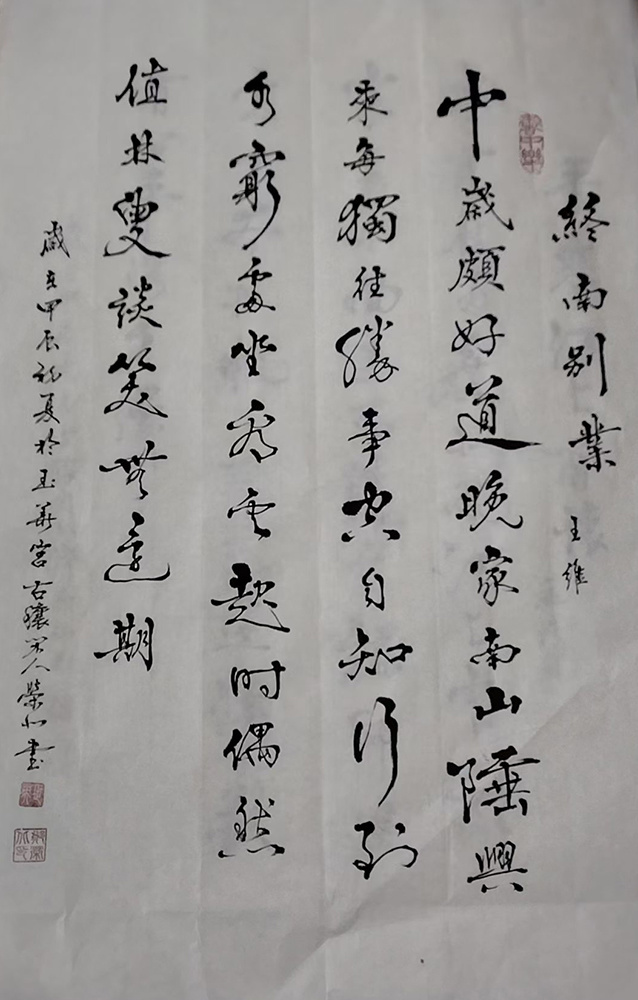 終南別業 王維
中歲頗好道晚家南山陲興
來每獨往勝事空自知行到
水窮處坐看雲起时偶然
值林叟談笑無還期
歲在甲辰初夏於玉華宮古穰閑人榮仁書